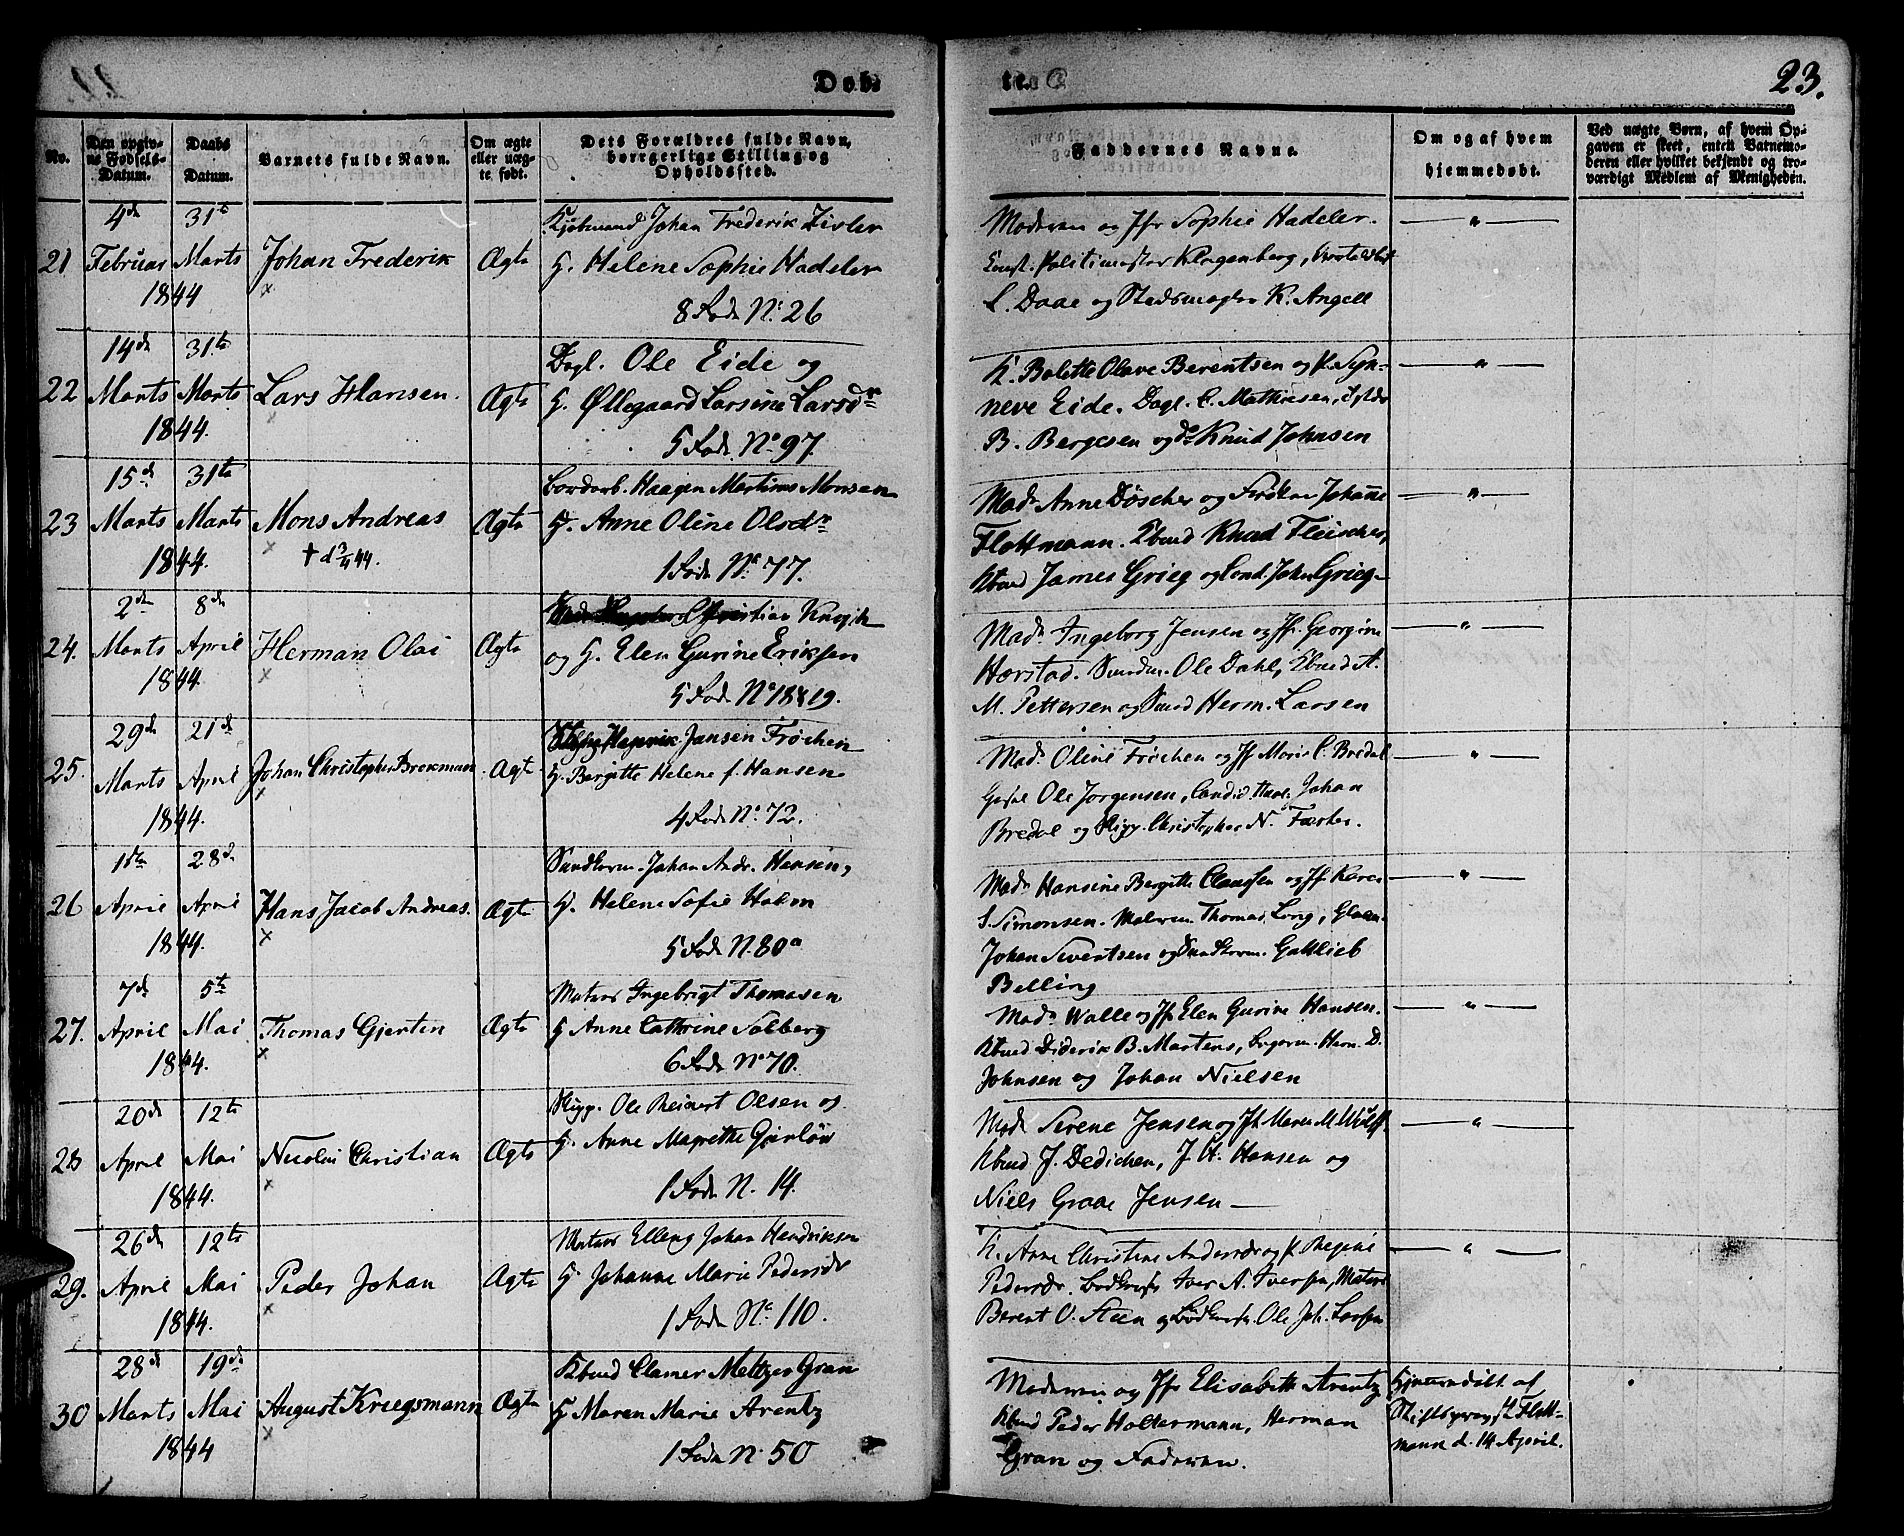 Døb-
te.
23.
No.
Den opgiv-
ne Fødsels-
Datum.
Daabs
Datum.
Barnets fulde Navn.
Om ægte
eller uæg-
te født.
Dets Forældres fulde Navn,
borgerlige Stilling og
Opholdssted.
Faddernes Navne.
Om og af hvem
hjemmedøbt.
Ved uægte Børn, af hvem Op-
gaven er skeet, enten Barnemo-
deren eller hvilket bekjendt og tro-
værdigt Medlem af Menigheden.
21
4de Februar 1844
31te Marts
Johan Frederik
Ægte
Kjøbmand Johan Frederik Zisler
H. Helene Sophie Hadeler
8 Rode No. 26
Moderen og Jfr Sophie Hadeler.
Const. Politimester Klagenberg,
L. Daae og Stadsmægler K. Angell
22
14de Marts 1844.
31te Marts
Lars Hansen.
Ægte
Dagl. Ole Eide og
H. Øllegaard Larsine Larsdr
5 Rode No. 97.
K. Bolette Olave Berentsen og P. Syn-
neve Eide. Dagl. C. Mathiesen,
B. Bergesen og do Knud Johnsen
23
15de Marts 1844.
31te Marts
Mons Andreas
† d 3/4 44.
Ægte
Haagen Martinus Monsen
H. Anne Oline Olsdr
1 Rode No. 77.
Mad. Anne Döscher og Frøken Johanne
Flottmann. Kbmd Knud Fleischer,
Kbmd James Grieg og Cond. John Grieg
24.
2den Marts 1844.
8de April
Herman Olai
Ægte
Christian Knoph
og H. Elen Gurine Eriksen
5 Rode No 18 & 19.
Madm. Ingeborg Jensen og Jfr. Georgine
Harstad. Ole Dahl, Kbmd A.
M. Pettersen og Herm. Larsen
25.
29de Marts 1844.
21de April
Johan Christopher Brekman
Ægte
Jansen Frøchen
H. Bergitte Helene f. Hansen
4 Rode No. 72.
Mad. Oline Frøchen og Jf Marie C. Bredal
Ole Jorgensen, Candid. Johan
Bredal og Skipp. Christopher N. Farster.
26
1ste April 1844.
28de April
Hans Jacob Andreas.
Ægte
Johan Andr. Hansen,
H. Helene Sofie Holm
5 Rode N. 80a
Madm Hansine Bergitte Claussen og Jf Karen
S. Simonsen. Maleren Thomas Long,
Johan Sivertsen og Gottlieb
Belling
27.
7de April 1844.
5te Mai
Thomas Gjerten
Ægte
Matros Ingebrigt Thomasen
H Anne Cathrine Solberg
6 Rode No 70.
Madm Walle og Jf Elen Gurine Hansen.
Kbmd Diderik B. Martens, Herm. D.
Johnsen og Johan Nielsen
28
20de April 1844.
12te Mai
Nicolai Christian
Ægte
Skipp. Ole Reinert Olsen og
H. Anne Magrethe Gjerløw
1 Rode N. 14.
Mad. Serene Jensen og Jf. Maren M. Wulff
Kbmd J. Dedichen, J. H. Hansen og
Niels Graae Jensen
29.
26de April 1844.
12te Mai
Peder Johan
Ægte
Matros Elling Johan Hendriksen
H. Johanne Marie Pedersdr
1 Rode No. 110.
K. Anne Christine Andersdr og P. Regine
Pedersdr. Iver A. Iversen, Matros
Berent O. Steen og Ole Joh. Larsen
30
28de Marts 1844
19de Mai
August Kriegsmann
Ægte
Kbmd Clamer Meltzer Gran
H Maren Marie Arentz
1 Rode N. 50
Moderen og Jfr Elisabeth Arentz
Kbmd Peder Holtermann, Herman
Gran og Faderen.
Hjemmedøbt af
Stiftsprovst Flott-
mann d. 14 April.